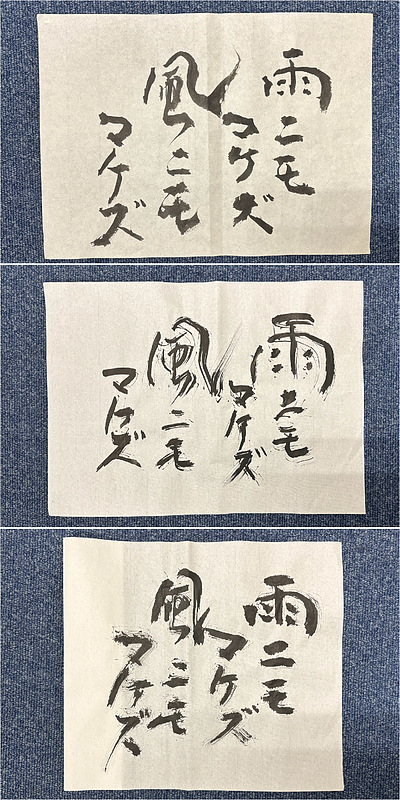 雨ニモ
マケズ
風ニモ
マケズ
雨ニモ
マケズ
風ニモ
マケズ
雨ニモ
マケズ
風ニモ
マケズ